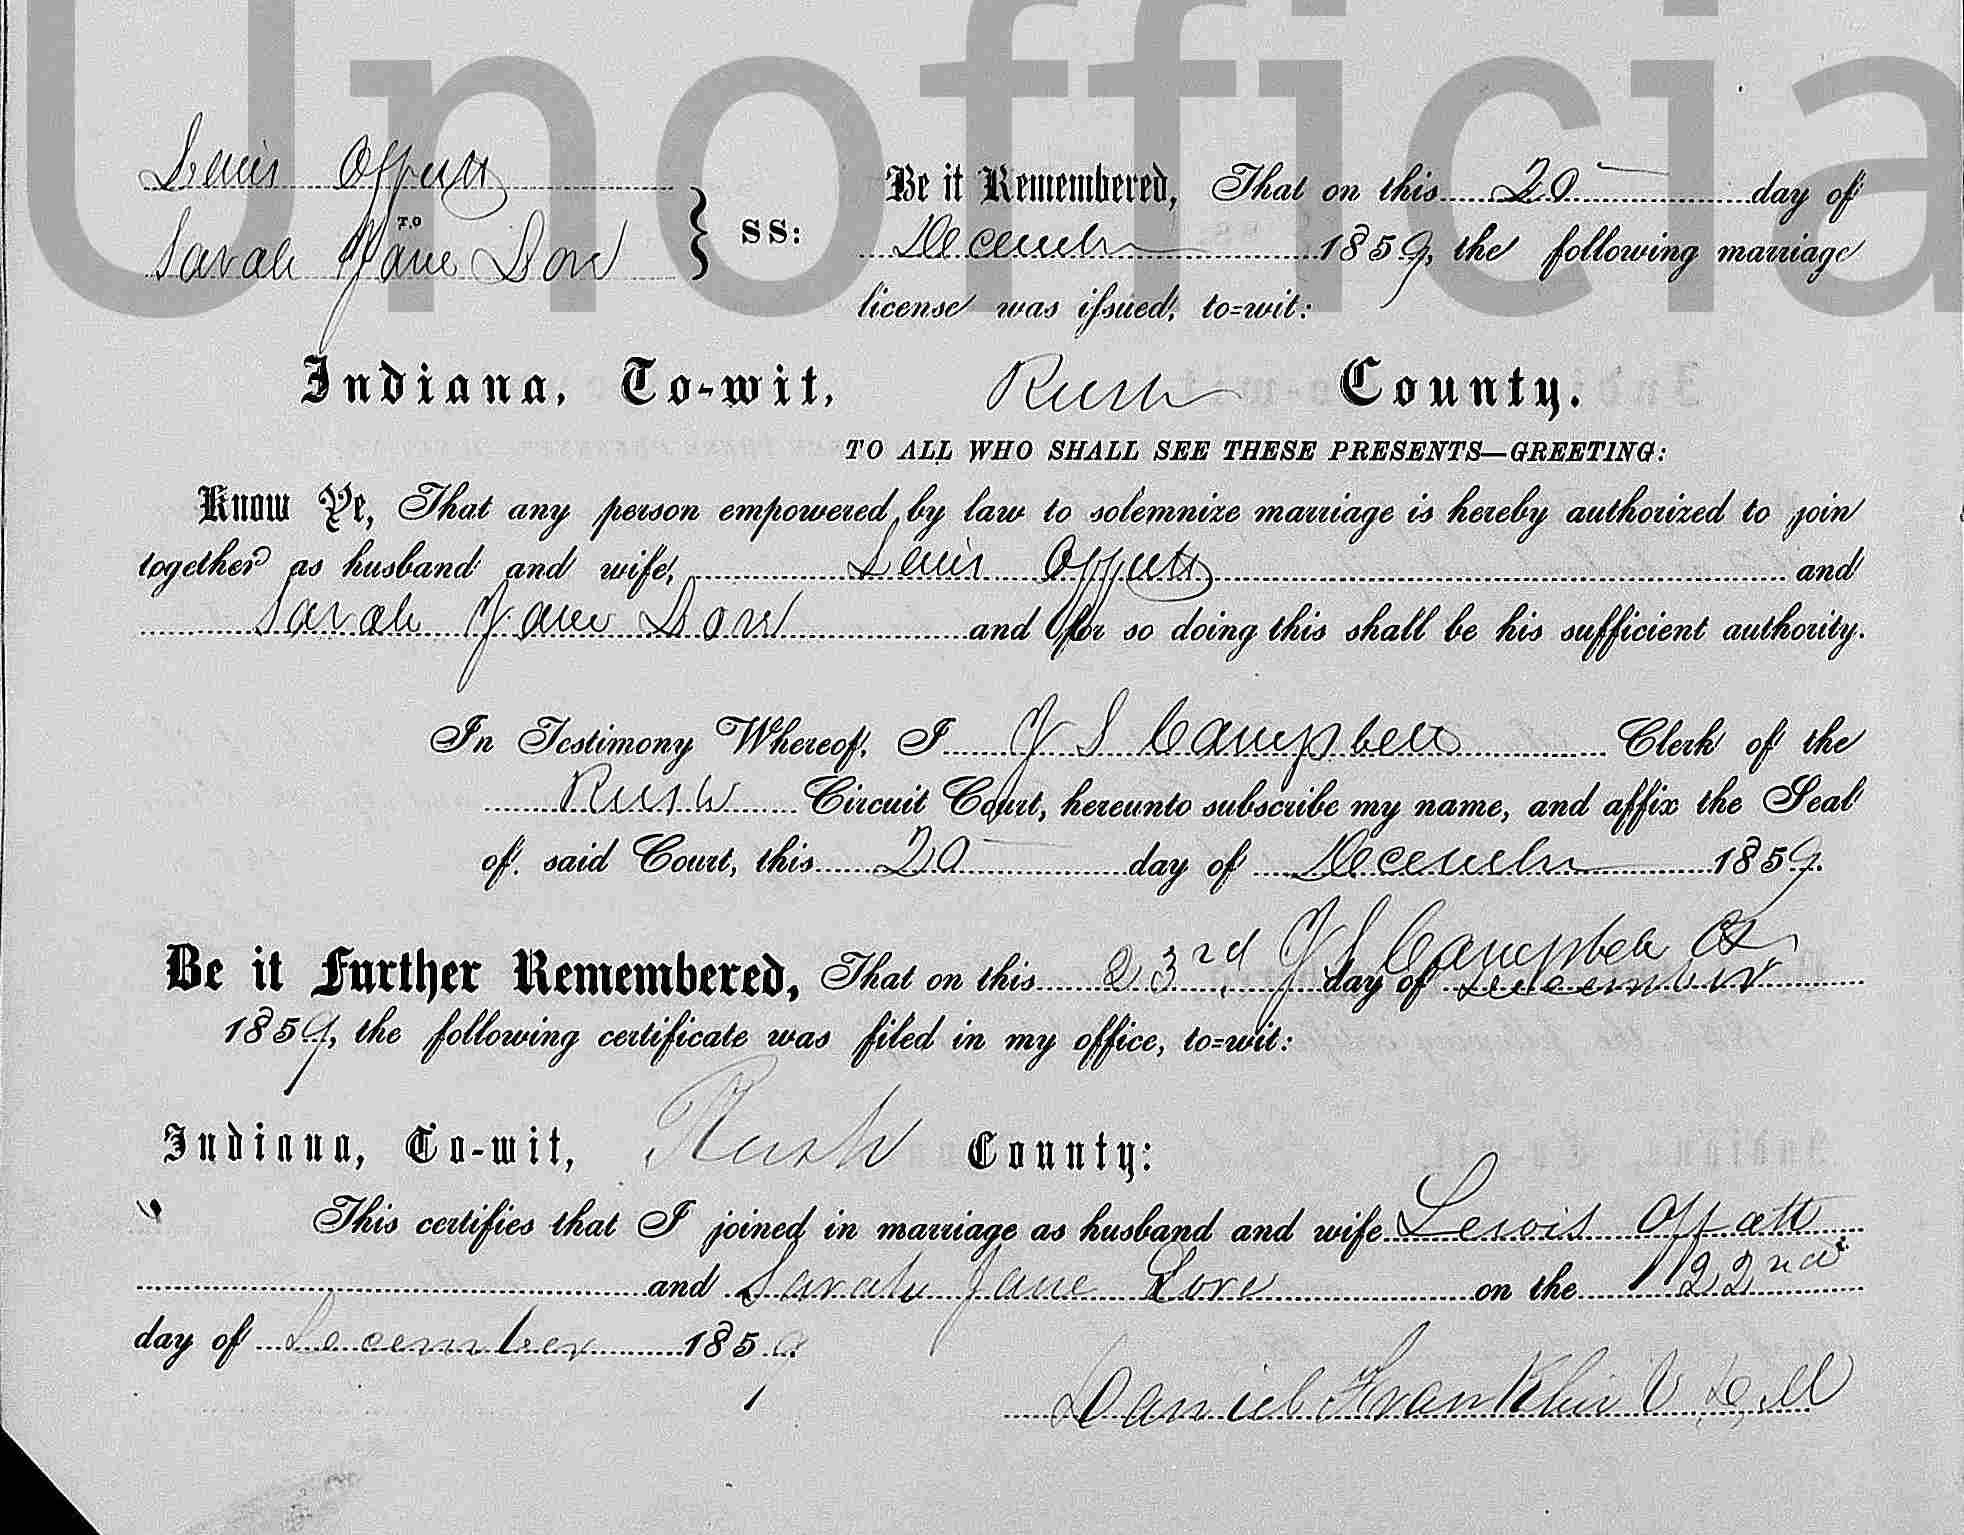 Unofficia
Lewis Offutt
TO
Sarah Jane Dove
} SS:
Be it Remembered, That on this 20 day of
December 1859, the following marriage
license was issued, to=wit:
Indiana, To-wit, Rush County.
TO ALL WHO SHALL SEE THESE PRESENTS—GREETING:
Know Ye, That any person empowered by law to solemnize marriage is hereby authorized to join
together as husband and wife, Lewis Offutt and
Sarah Jane and for so doing this shall be his sufficient authority.
In Testimony Whereof, I J S Campbell Clerk of the
Rush Circuit Court, hereunto subscribe my name, and affix the Seal
of said Court, this 20 day of December 1859.
J S Campbell Clk
Be it Further Remembered, That on this 23rd day of December
1859, the following certificate was filed in my office, to=wit:
Indiana, To-wit, Rush County:
This certifies that I joined in marriage as husband and wife Lewis Offatt
and Sarah Jane on the 22nd
day of December 1859.
Daniel Franklin V. D. M